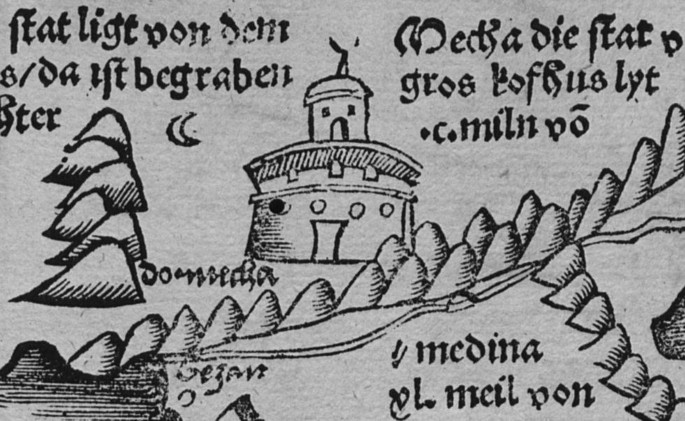 stat ligt von dem
s/da ist begraben
hter
Mecha die stat v
gros kofhus lyt
.c. miln võ
domecha
medina
xl. meil von